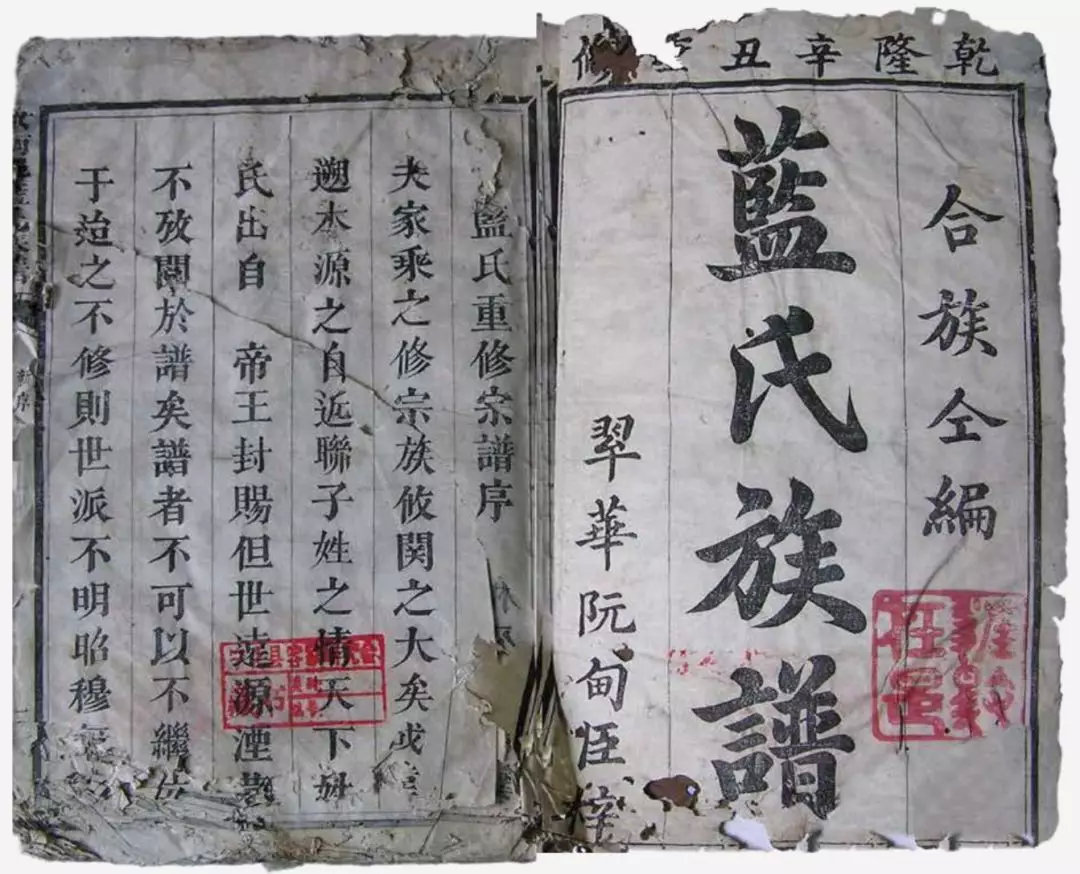 乾隆辛丑修
合族仝編
藍氏族譜
翠華阮甸
藍氏重修宗譜序
夫家乘之修宗族攸関之大矣或
遡本源之自近聯子姓之情天下姓
氏出自 帝王封賜但世遠源湮
不攷關於譜矣譜者不可以不繼
于迨之不修則世派不明昭穆